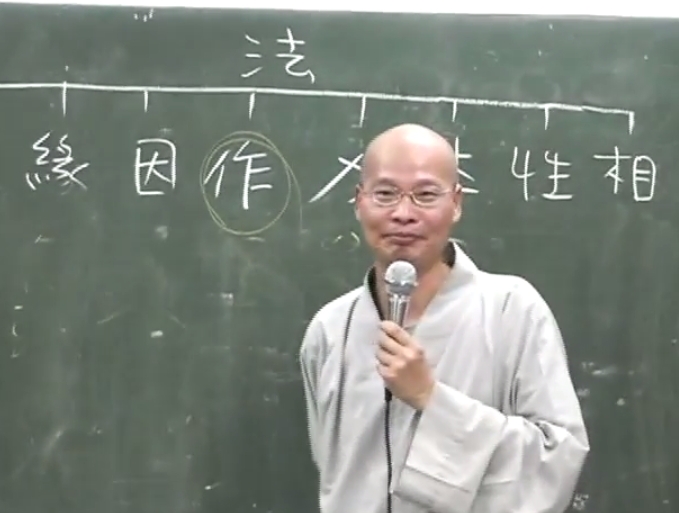 法
相 性 作 因 緣